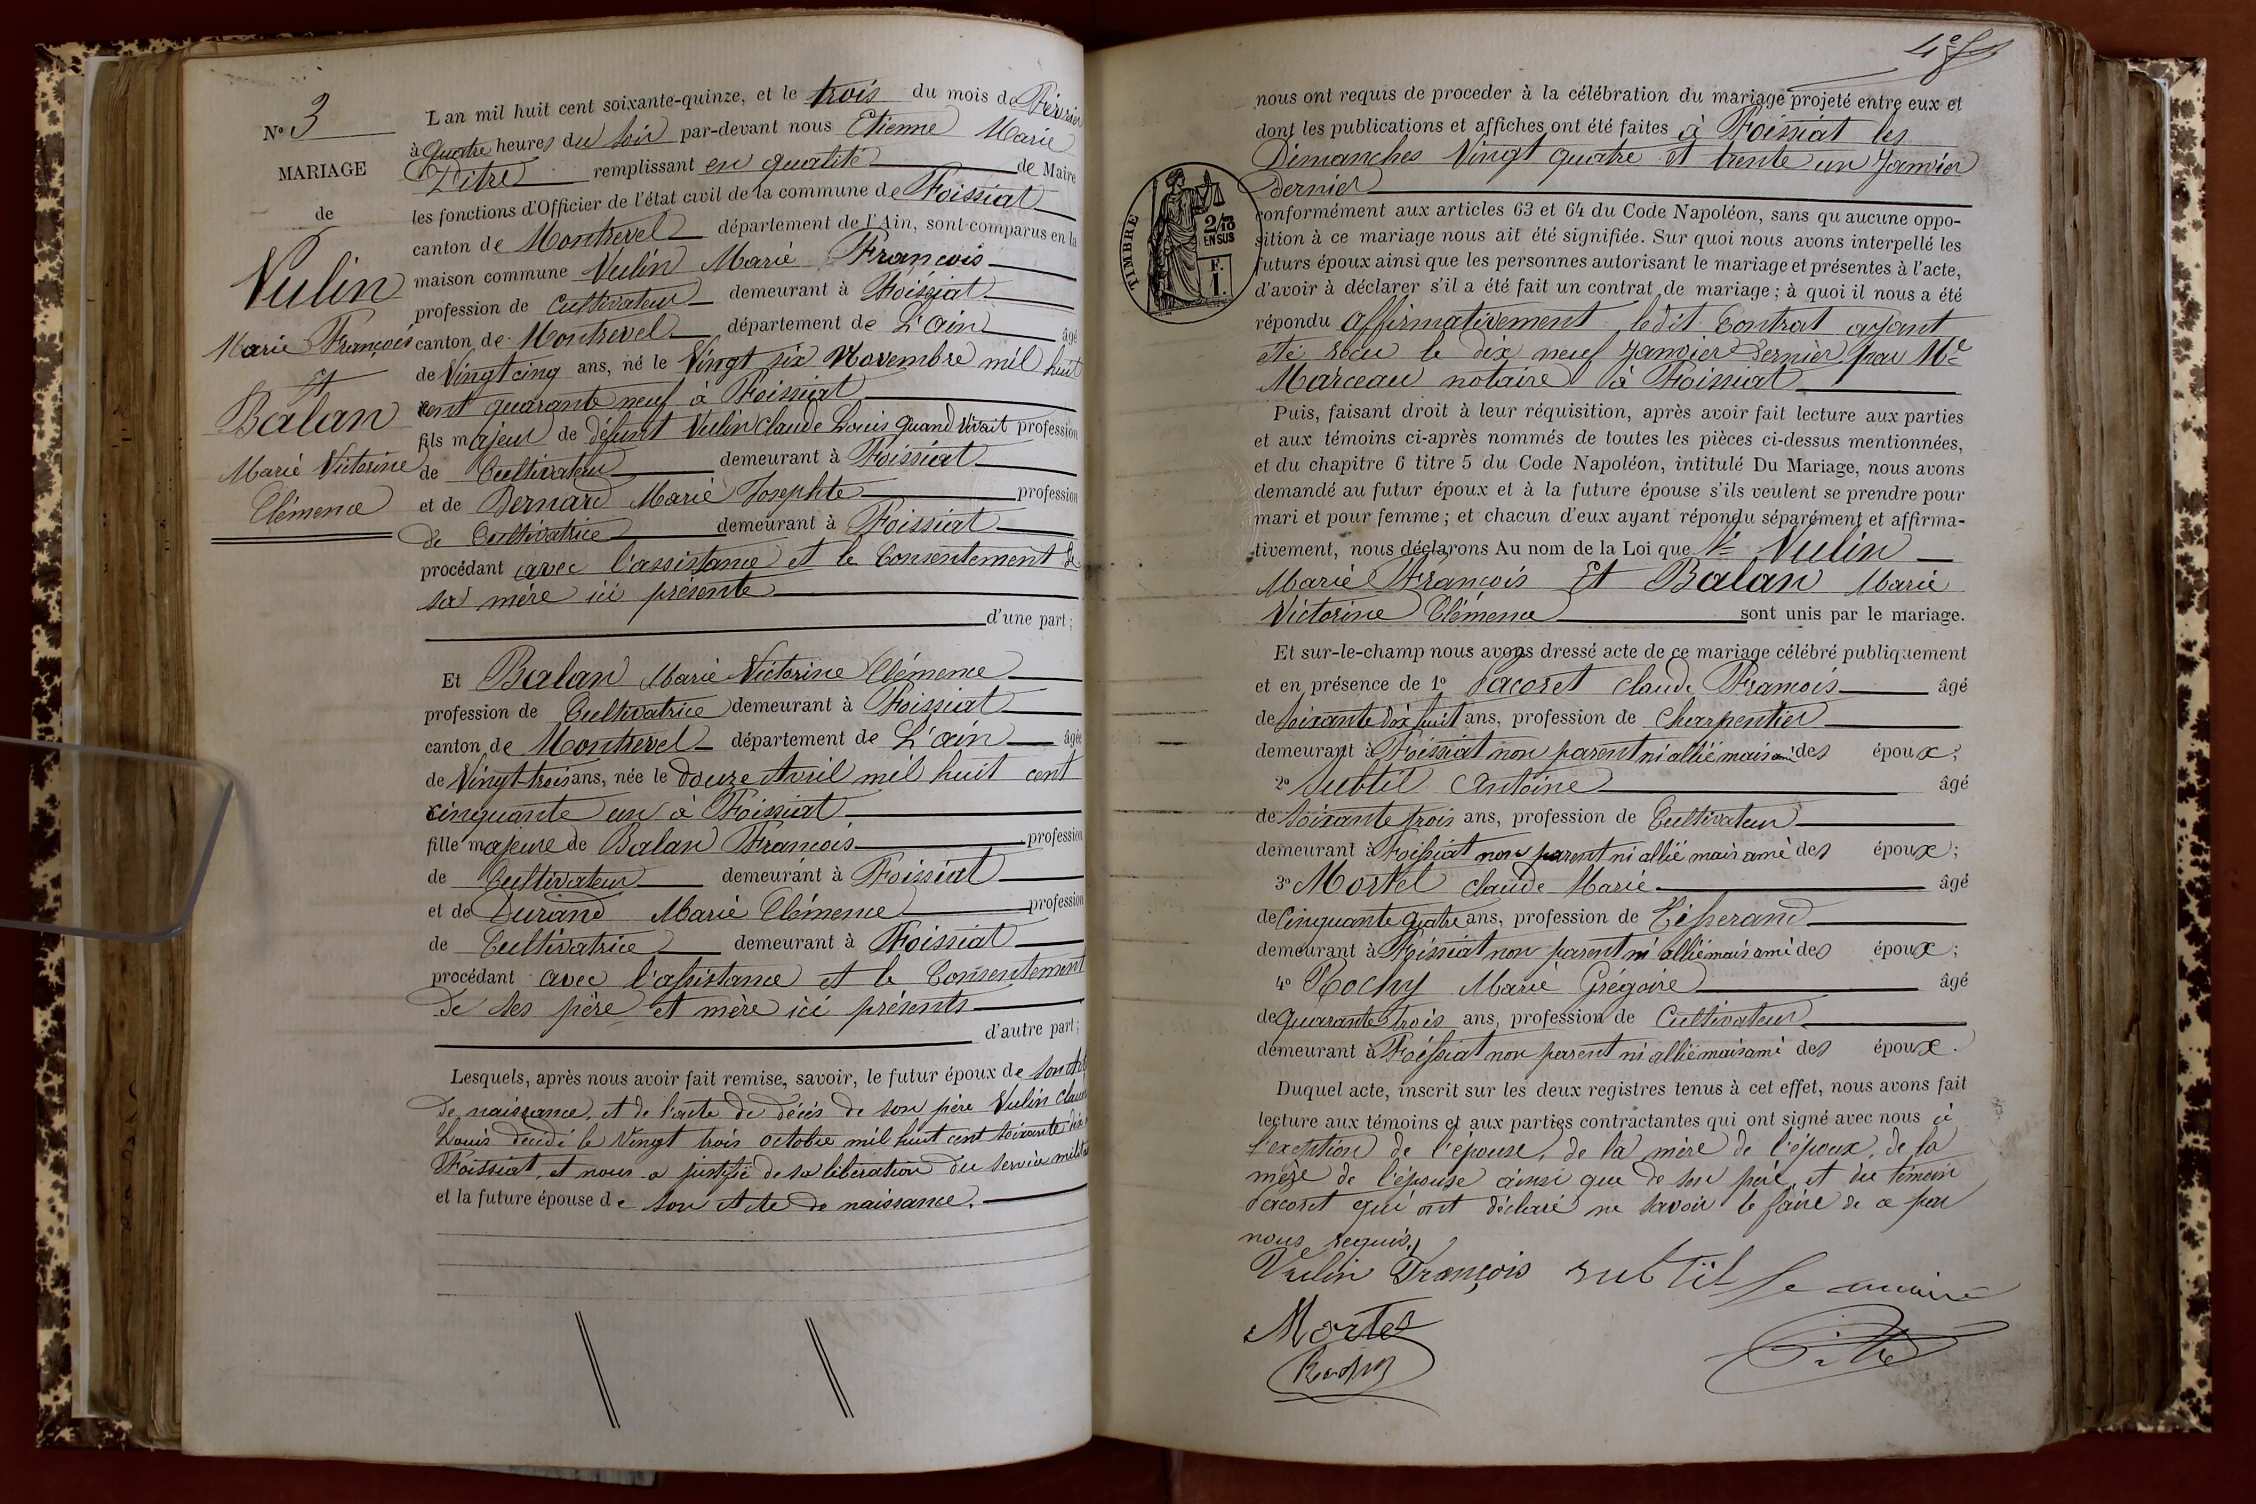 N° 3
MARIAGE
de
Vulin
Marie François
Et
Balan
Marie Victorine
Clémence
L'an mil huit cent soixante-quinze, et le trois du mois de Février
à quatre heures du soir par-devant nous Etienne Marie
Pitre remplissant en qualité de Maire
les fonctions d'Officier de l'état civil de la commune de Foissiat
canton de Montrevel département de l'Ain, sont comparus en la
maison commune Vulin Marie François
profession de Cultivateur demeurant à Foissiat
canton de Montrevel département de L'ain âgé
de Vingt cinq ans, né le Vingt six Novembre mil huit
cent quarante neuf à Foissiat
fils majeur de défunt Vulin Claude Louis quand vivait profession
de Cultivateur demeurant à Foissiat
et de Bernard Marie Josephte profession
de Cultivatrice demeurant à Foissiat
procédant avec l'assistance et le Consentement de
sa mère ici présente
d'une part;
Et Balan Marie Victorine Clémence
profession de Cultivatrice demeurant à Foissiat
canton de Montrevel département de L'ain âgée
de Vingt-trois ans, née le douze Avril mil huit cent
cinquante un à Foissiat
fille majeure de Balan François profession
de Cultivateur demeurant à Foissiat
et de Durand Marie Clémence profession
de Cultivatrice demeurant à Foissiat
procédant avec l'assistance et le Consentement
de ses père et mère ici présents
d'autre part;
Lesquels, après nous avoir fait remise, savoir, le futur époux de son
de naissance, et de l'acte de décès de son père Vulin Claude
Louis décédé le Vingt trois octobre mil huit cent soixante dix
Foissiat, et nous a justifié de sa libération du service
et la future épouse de son Acte de naissance.
4e f
nous ont requis de proceder à la célébration du mariage projeté entre eux et
dont les publications et affiches ont été faites à Foissiat les
Dimanches Vingt quatre et trente un Janvier
dernier
TIMBRE
2/10
EN SUS
F.
1.
conformément aux articles 63 et 64 du Code Napoléon, sans qu'aucune oppo-
sition à ce mariage nous ait été signifiée. Sur quoi nous avons interpellé les
futurs époux ainsi que les personnes autorisant le mariage et présentes à l'acte,
d'avoir à déclarer s'il a été fait un contrat de mariage; à quoi il nous a été
répondu affirmativement ledit Contrat ayant
été recu le dix neuf Janvier dernier par Me
Marceau notaire à Foissiat
Puis, faisant droit à leur réquisition, après avoir fait lecture aux parties
et aux témoins ci-après nommés de toutes les pièces ci-dessus mentionnées,
et du chapitre 6 titre 5 du Code Napoléon, intitulé Du Mariage, nous avons
demandé au futur époux et à la future épouse s'ils veulent se prendre pour
mari et pour femme; et chacun d'eux ayant répondu séparément et affirma-
tivement, nous déclarons Au nom de la Loi que Vulin
Marie François Et Balan Marie
Victorine Clémence sont unis par le mariage.
Et sur-le-champ nous avons dressé acte de ce mariage célébré publiquement
et en présence de 1° Pacoret Claude François âgé
de soixante dix huit ans, profession de Charpentier
demeurant à Foissiat non parent ni allié mais ami des époux;
2° Subtil Antoine âgé
de soixante trois ans, profession de Cultivateur
demeurant à Foissiat non parent ni allié mais ami des époux;
3° Mortel Claude Marie âgé
de Cinquante quatre ans, profession de Tisserand
demeurant à Foissiat non parent ni allié mais ami des époux;
4° Rochy Marie Grégoire âgé
de quarante trois ans, profession de Cultivateur
demeurant à Foissiat non parent ni allié mais ami des époux.
Duquel acte, inscrit sur les deux registres tenus à cet effet, nous avons fait
lecture aux témoins et aux parties contractantes qui ont signé avec nous à
l'exeption de l'épouse, de la mère de l'époux, de la
mère de l'épouse ainsi que de son père et du témoin
Pacoret qui ont déclaré ne savoir le faire de ce par
nous requis.
Vulin François subtil le maire
Mortel
Rochy Pitre